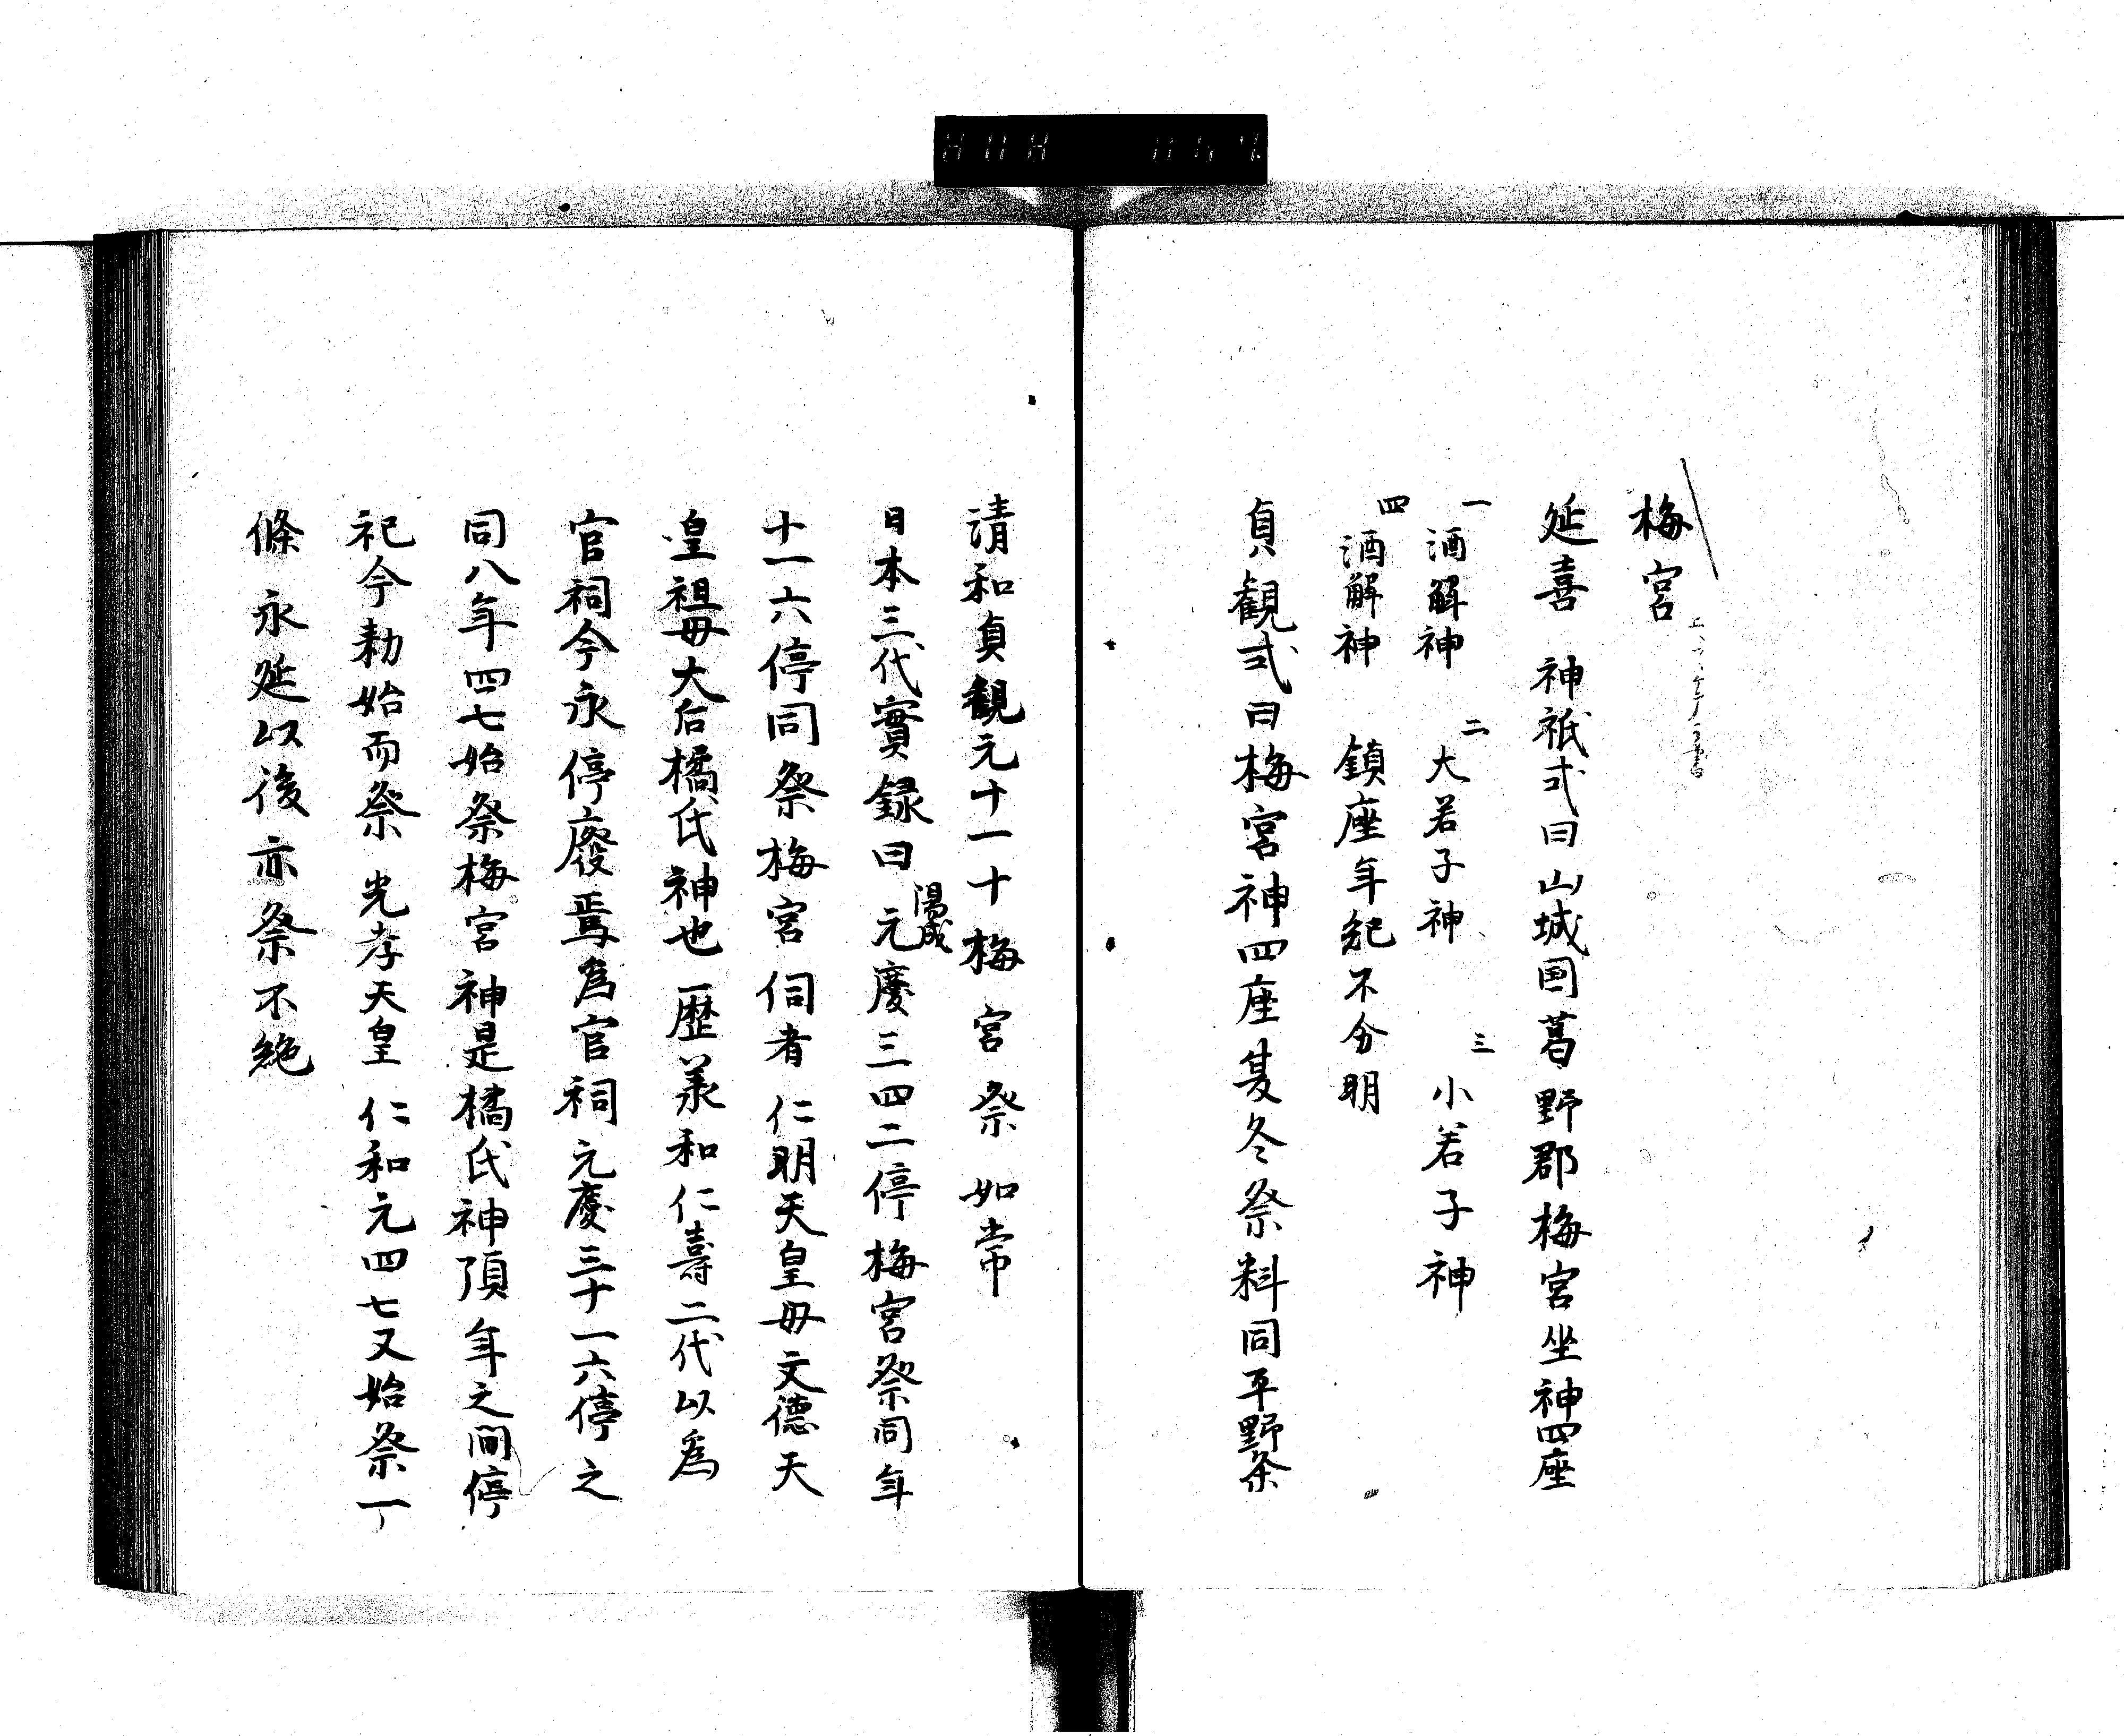 梅宮
延喜 神祇式曰山城国葛野郡梅宮坐神四座
一酒解神 二大若子神 三小若子神
四酒解神 鎮座年紀不分明
貞観式曰梅宮神四座夏冬祭料同平野祭
清和貞観元十一十梅宮祭如常
日本三代實録曰陽成元慶三四二停梅宮祭同年
十一六停同祭梅宮伺者仁明天皇母文德天
皇祖母大后橘氏神也歴羕和仁壽二代以為
官祠今永停廢焉為官祠元慶三十一六停之
同八年四七始祭梅宮神是橘氏神頂年之間停
祀今勅始而祭 光孝天皇 仁和元四七又始祭一丁
條永延以後亦祭不絶